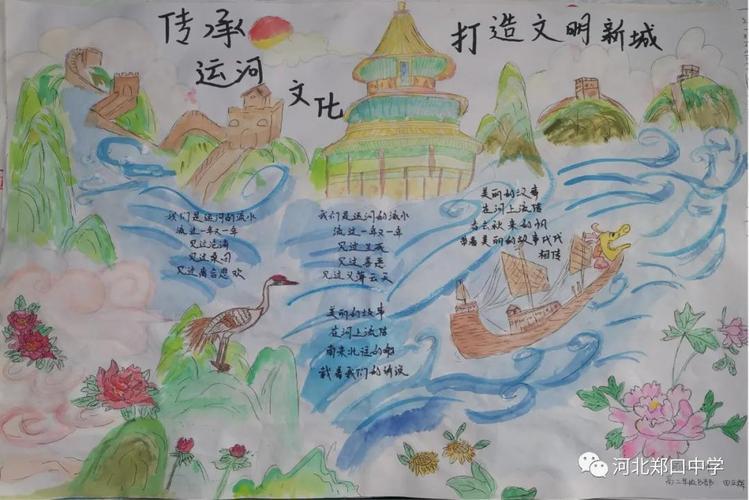 传承
运河
文化
打造文明新城
我们是运河的流水
流过一年又一年
见过沧海
见过桑田
见过离合悲欢
我们是运河的流水
流过一年又一年
见过喜悉
见过义薄云天
美丽的故事
在河上流传
南来北往的船
载着我们的诉说
美丽的故事
在河上流传
南去秋来的帆
带着美丽的故事代代
相传
河北郑口中学